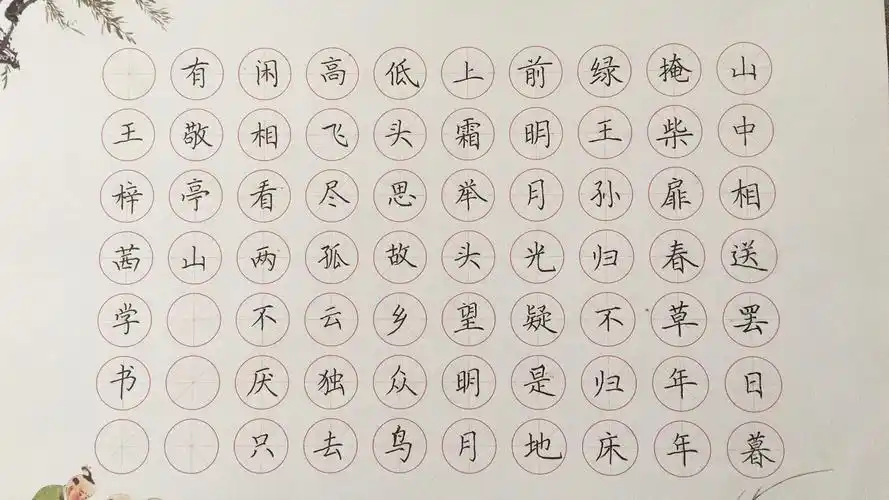 山中相送罢日暮
掩柴扉春草年年
绿王孙归不归床
前明月光疑是地
上霜举头望明月
低头思故乡众鸟
高飞尽孤云独去
闲相看两不厌只
有敬亭山
王梓茜学书